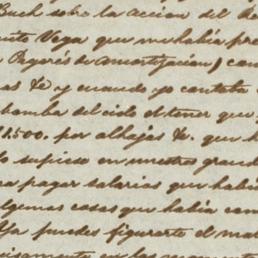 Buch sobre la accion del Re
ente Vega que me habia pre
Pagarés de amortizacion) can
as &c y cuando yo contaba c
bomba del cielo el tener que
1.500. por alhajas &c. que h
lo supiese en nuestra grand
ra pagar salarios que habia
algunas cosas que habia com
Ya puedes figurarte el mal
cisamente en los momentos